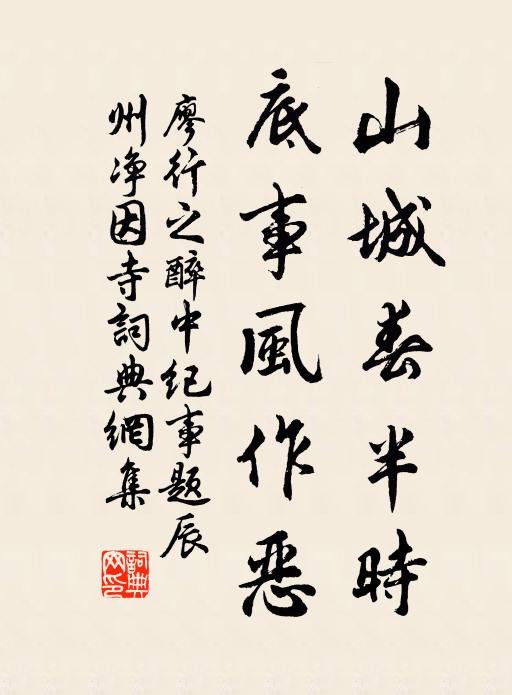 山城春半時
底事風作惡
廖行之醉中纪事題辰
州净因寺詞典網集
詞典網印